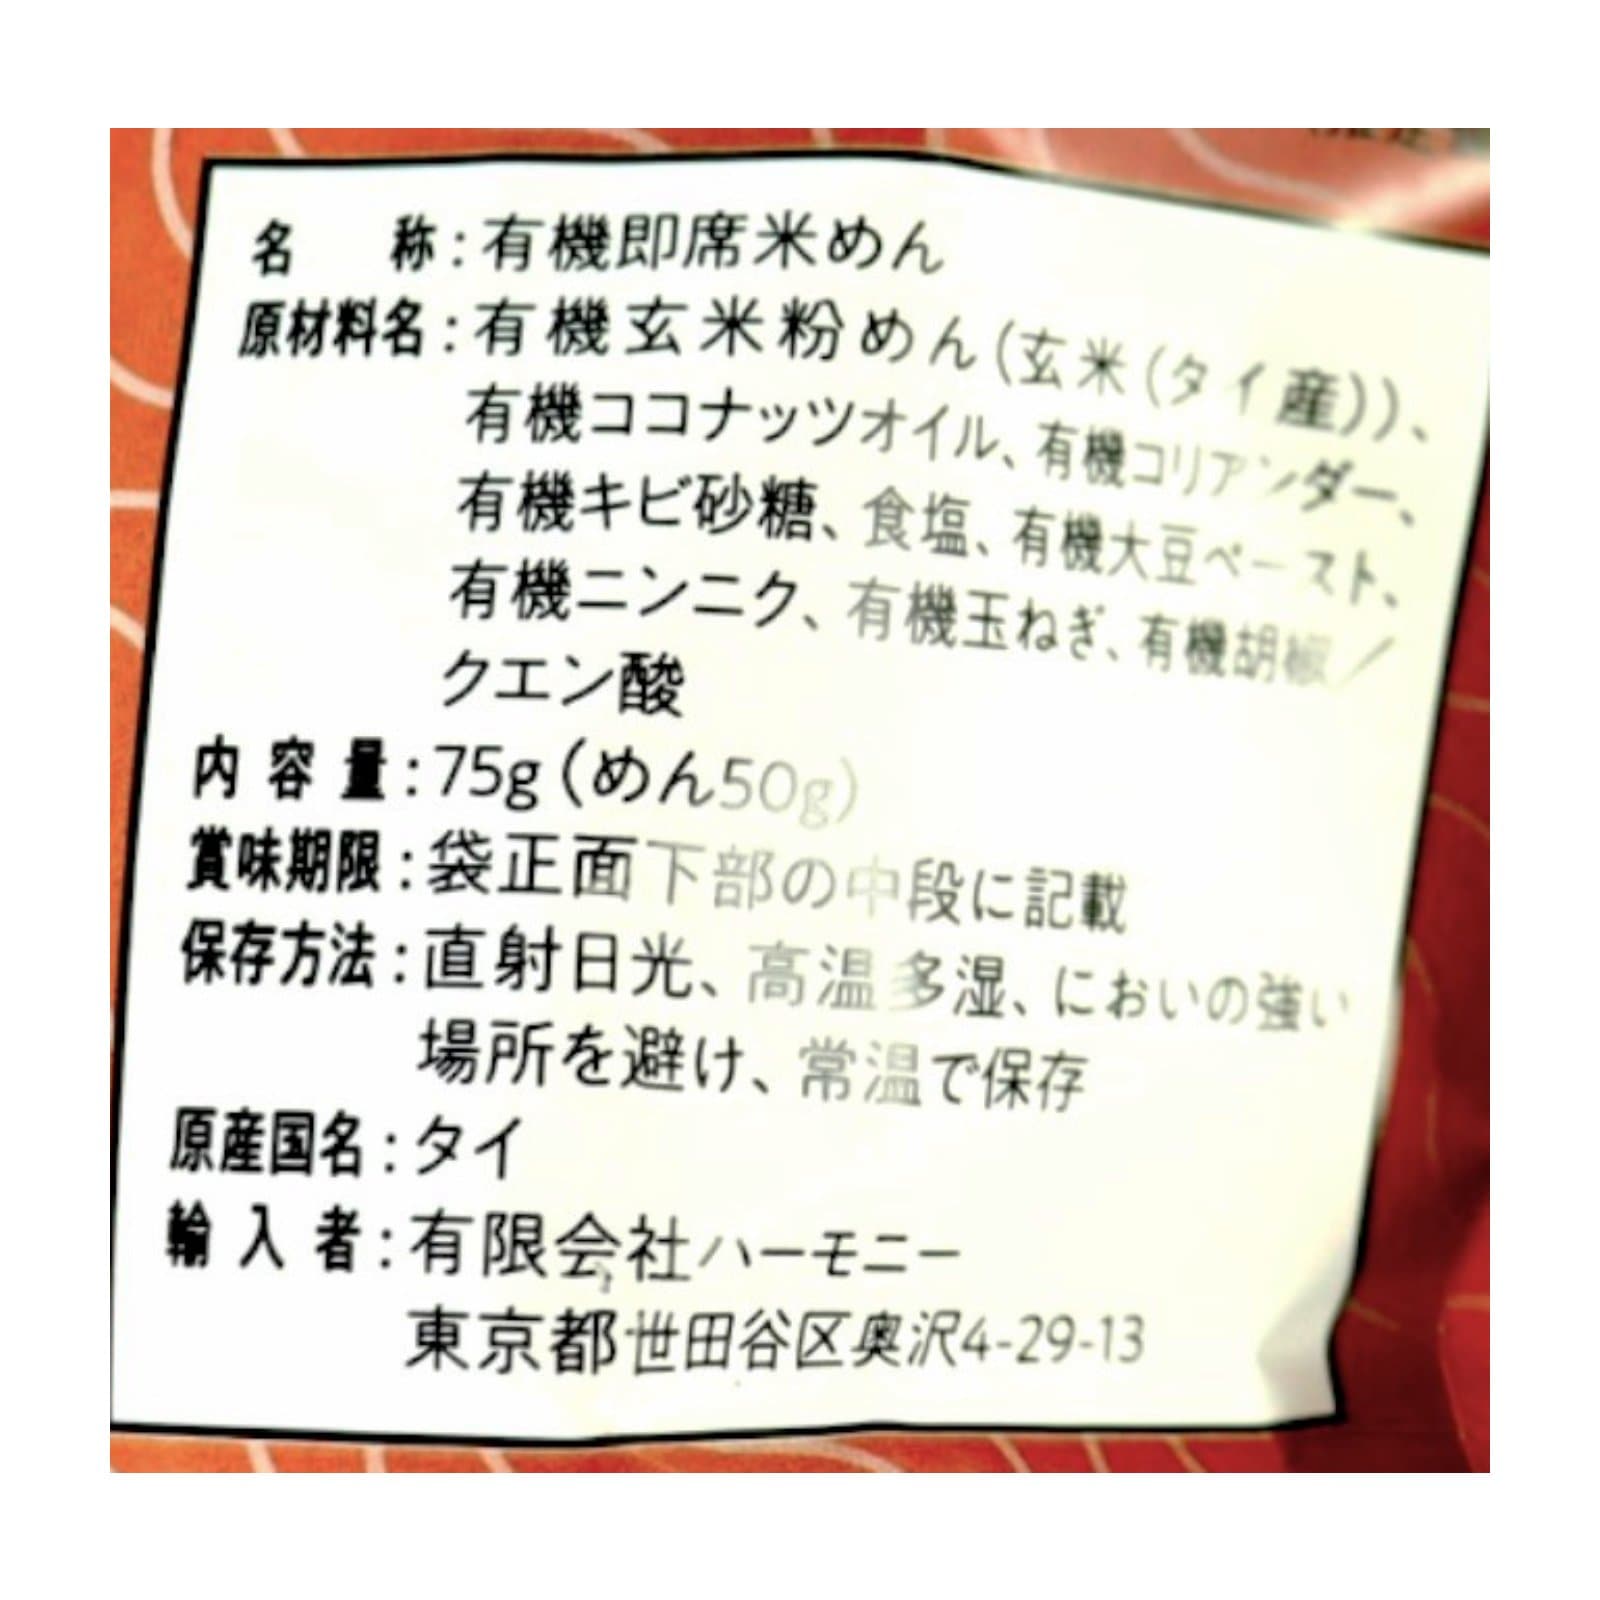 名　称：有機即席米めん
原材料名：有機玄米粉めん（玄米（タイ産））、
有機ココナッツオイル、有機コリアンダー、
有機キビ砂糖、食塩、有機大豆ペースト、
有機ニンニク、有機玉ねぎ、有機胡椒／
クエン酸
内容量：75g（めん50g）
賞味期限：袋正面下部の中段に記載
保存方法：直射日光、高温多湿、においの強い
場所を避け、常温で保存
原産国名：タイ
輸入者：有限会社ハーモニー
東京都世田谷区奥沢4-29-13